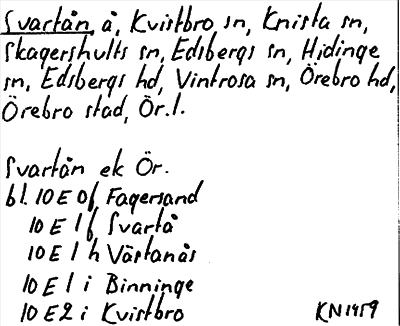 Svartån, å, Kvistbro sn, Knista sn,
Skagershults sn, Edsbergs sn, Hidinge
sn, Edsbergs hd, Vintrosa sn, Örebro hd,
Örebro stad, Ör.l.
Svartån ek Ör.
bl. 10 E 0f, Fagersand
10 E 1 f Svartå
10 E 1 h Västanås
10 E 1 i Binninge
10 E 2 i Kvistbro
KN 1959